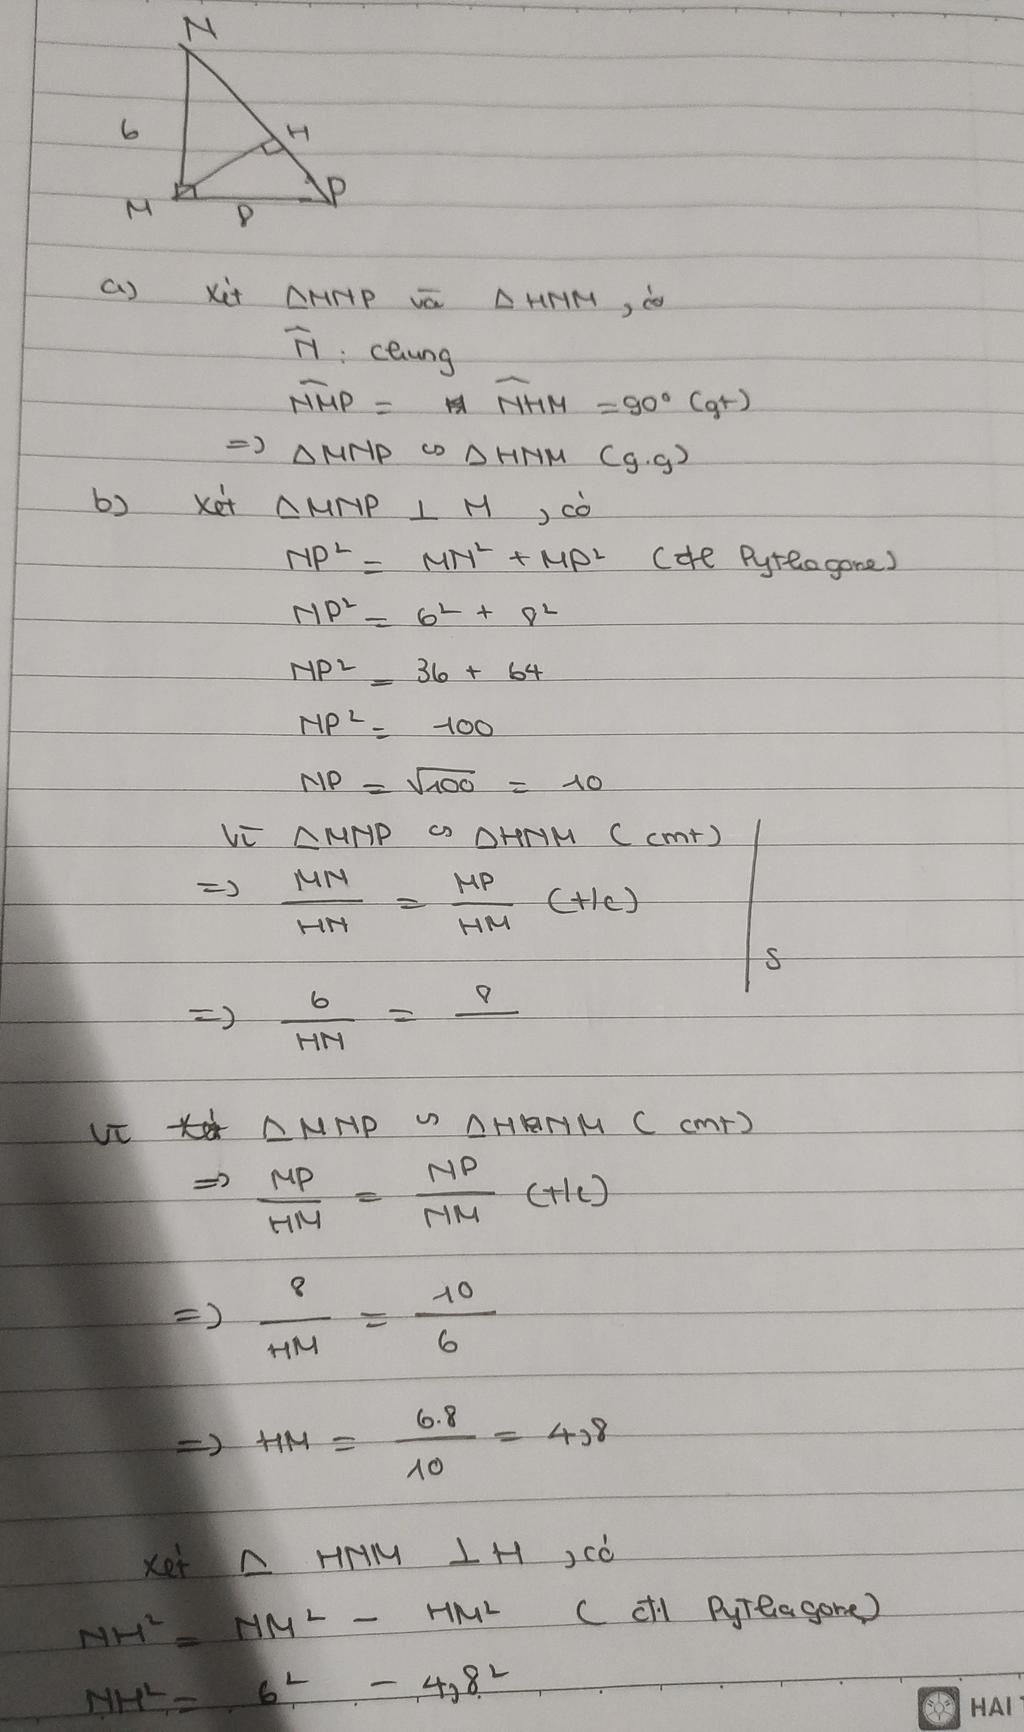 N
6
H
M
8
P
a) Xét △MNP và △HNM, có
N̂ : chung
N̂MP = N̂HM = 90° (gt)
=> △MNP ∽ △HNM (g.g)
b) Xét △MNP ⊥ M, có
NP² = MN² + MP² (đl Pythagore)
NP² = 6² + 8²
NP² = 36 + 64
NP² = 100
NP = √100 = 10
Vì △MNP ∽ △HNM (cmt)
=> MN/HN = MP/HM (t/c)
S
=> 6/HN = 8/
Vì △MNP ∽ △HNM (cmt)
=> MP/HM = NP/NM (t/c)
=> 8/HM = 10/6
=> HM = 6.8/10 = 4,8
Xét △ HNM ⊥ H, có
NH² = NM² - HM² (đl Pythagore)
NH² = 6² - 4,8²
HAI